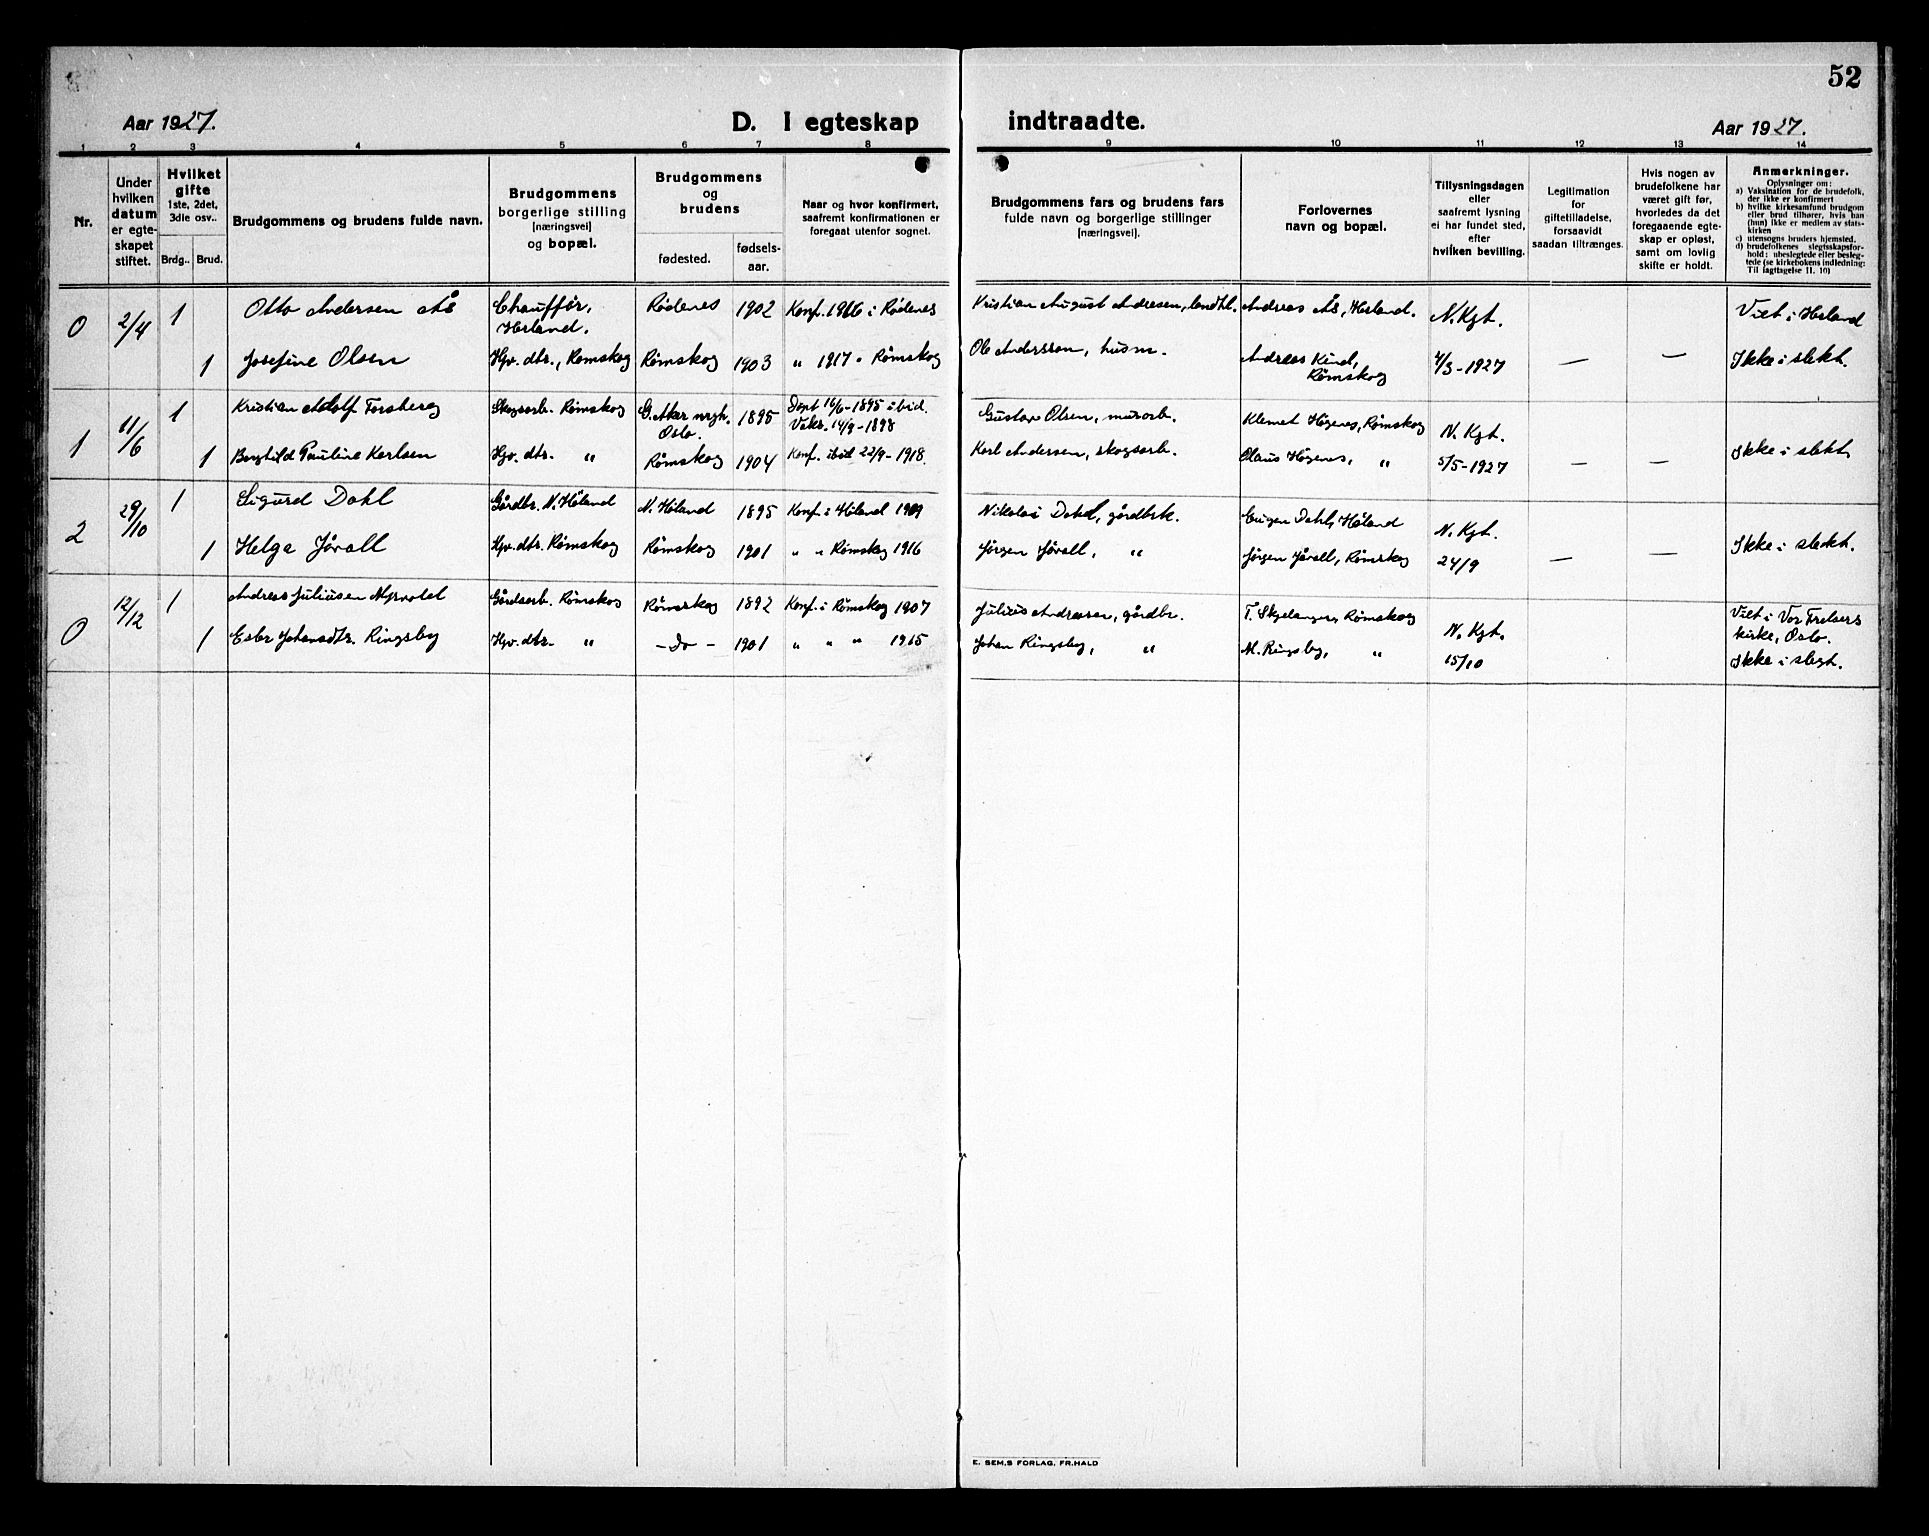 52
Aar 1927.
D. I egteskap indtraadte.
Aar 1927.
1 2 3 4 5 6 7 8 9 10 11 12 13 14
Nr.
Under hvilken datum er egteskapet stiftet.
Hvilket gifte 1ste, 2det, 3die osv..
Brdg.. Brud.
Brudgommens og brudens fulde navn.
Brudgommens borgerlige stilling (næringsvei) og bopæl.
Brudgommens og brudens
fødested. fødselsaar.
Naar og hvor konfirmert, saafremt konfirmationen er foregaat utenfor sognet.
Brudgommens fars og brudens fars fulde navn og borgerlige stillinger (næringsvei).
Forlovernes navn og bopæl.
Tillysningsdagen eller saafremt lysning ei har fundet sted, efter hvilken bevilling.
Legitimation for giftetilladelse, forsaavidt saadan tiltrænges.
Hvis nogen av brudefolkene har været gift før, hvorledes da det foregaaende egteskap er opløst, samt om lovlig skifte er holdt.
Anmerkninger.
Oplysninger om:
a) Vaksination for de brudefolk, der ikke er konfirmert
b) hvilke kirkesamfund brudgom eller brud tilhører, hvis han (hun) ikke er medlem av statskirken
c) utensogns bruders hjemsted.
d) brudefolkenes slegtsskapsforhold: ubeslegtede eller beslegtede (se kirkebokens indledning: Til iagttagelse II. 10)
0 2/4 1 Otto Andersen Ås Chauffør, Herland. Rødenes 1902 Konf. 1916 i Rødenes Kristian August Andresen, landhl. Andreas Ås, Herland. N. Kgt. Viet i Herland
1 Josefine Olsen Hjv. dtr., Rømskog Rømskog 1903 " 1917 " Rømskog Ole Anderssen, husm. Andreas Kind, Rømskog 4/3-1927 — — Ikke i slekt.
1 11/6 1 Kristian Adolf Forsberg Skogsarb. Rømskog G. Aker mgh. Oslo. 1895 Døpt 16/6-1895 ibid. Vaks. 14/9-1898 Gustav Olsen, murarb. Klemet Høgenes, Rømskog N. Kgt.
1 Borghild Pauline Karlsen Hjv. dtr. " Rømskog 1904 Konf. ibid 22/9-1918. Karl Andersen, skogsarb. Claus Høgenes, " 5/5-1927 — — Ikke i slekt
2 29/10 1 Sigurd Dahl Gårdbr. N. Høland N. Høland 1895 Konf. i Høland 1909 Nikolai Dahl, gårdbrk. Eugen Dahl, Høland N. Kgt.
1 Helga Jåvall Hjv. dtr. Rømskog Rømskog 1901 " " Rømskog 1916 Jørgen Jåvall, " Jørgen Jåvall, Rømskog 24/9 — — Ikke i slekt.
0 12/12 1 Andreas Juliusen Gårdsarb. Rømskog Rømskog 1892 Konf. i Rømskog 1907 Julius Andresen, gårdbr. T. Rømskog N. Kgt. Viet i Vor Frelsers kirke, Oslo.
1 Ester Johansdtr. Ringsby Hjv. dtr. " – Do – 1901 " " " 1915 Johan Ringsby, " M. Ringsby, " 15/10 Ikke i slegt.
E. SEM.S FORLAG, FR.HALD